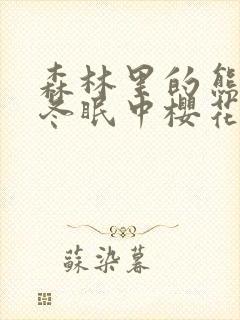 森林里的熊
冬眠中樱花
蘇染暮